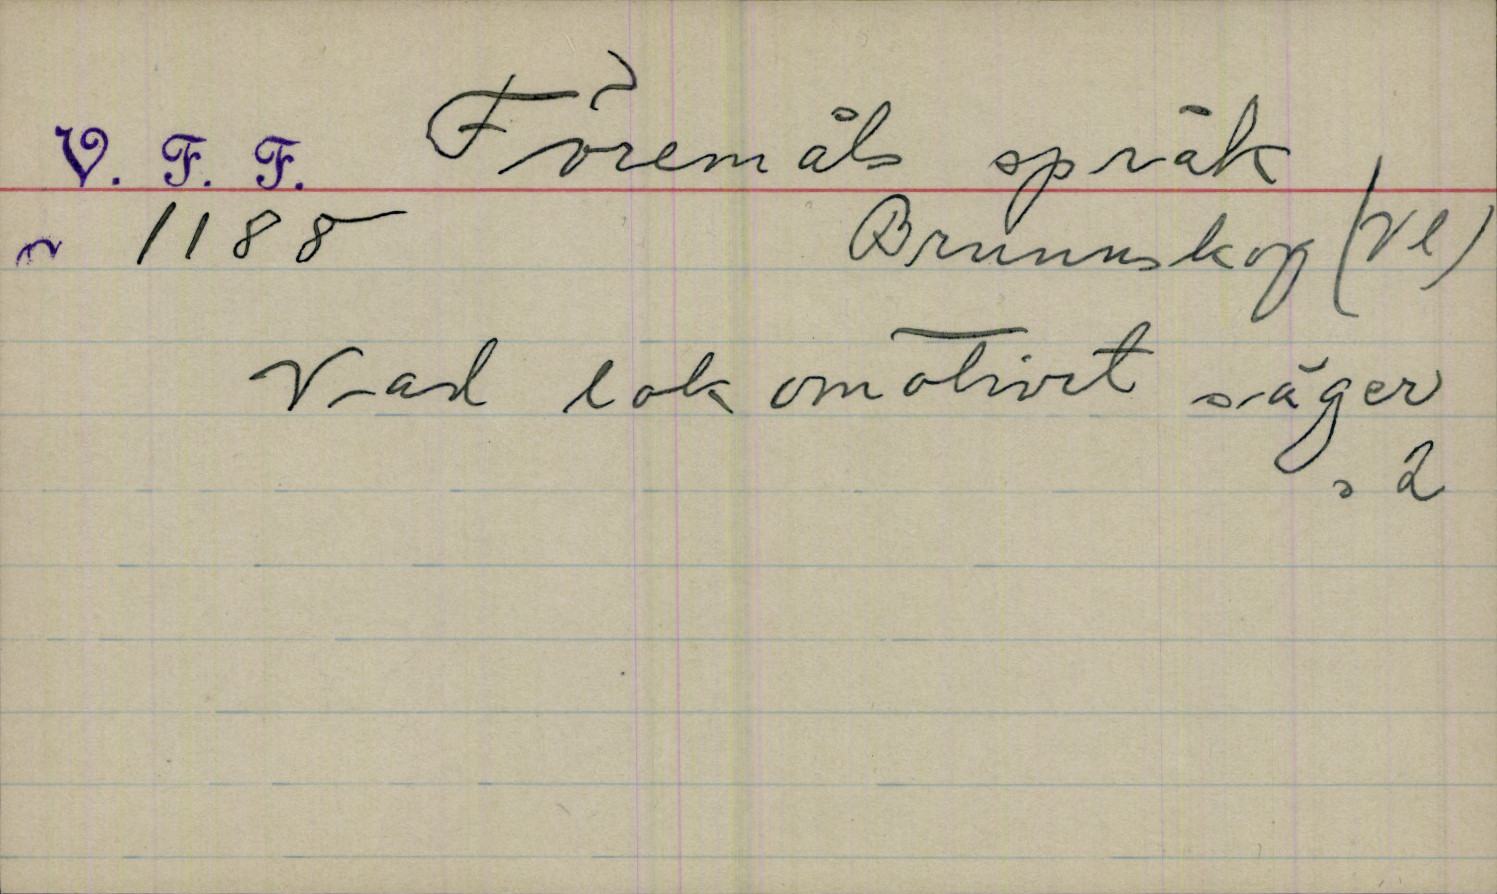 V. F. F. Föremåls språk
1188 Brunnskog (Vl)
Vad lokomotivet säger
s 2